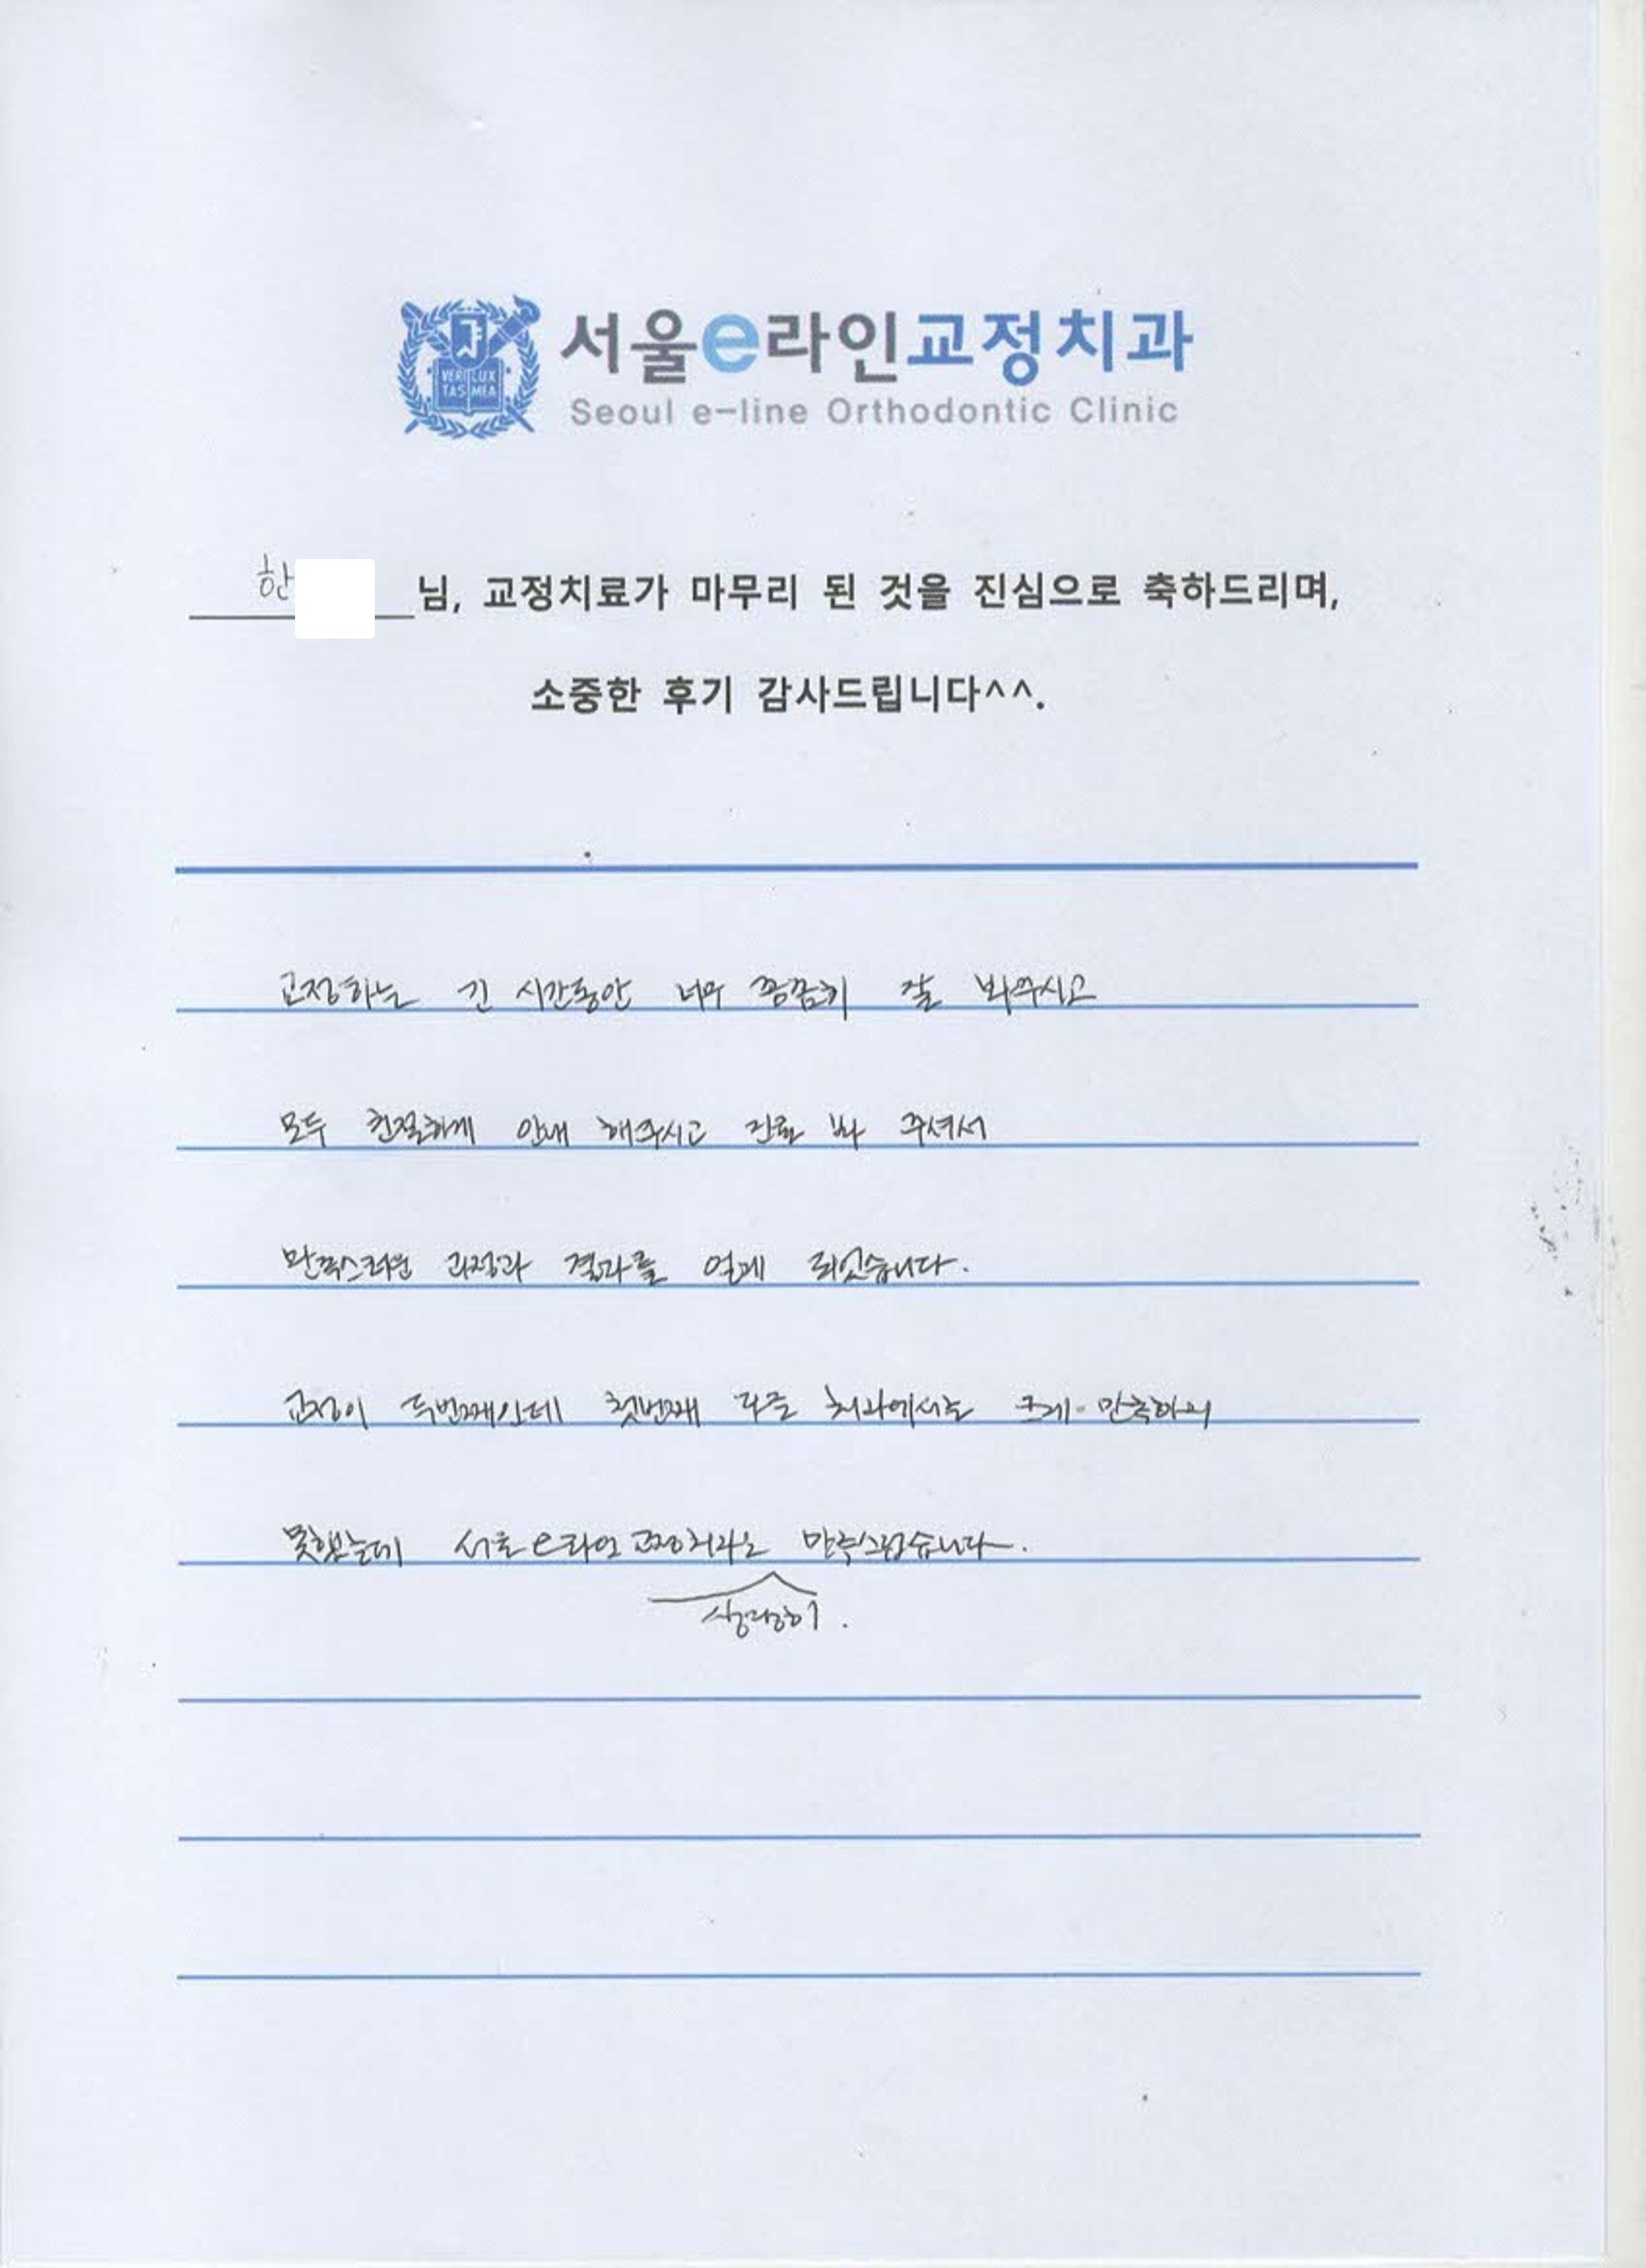 VERI LUX
TAS MEA
서울e라인교정치과
Seoul e-line Orthodontic Clinic
한 님, 교정치료가 마무리 된 것을 진심으로 축하드리며,
소중한 후기 감사드립니다^^.
교정하는 긴 시간동안 너무 꼼꼼히 잘 봐주시고
모두 친절하게 안내 해주시고 진료 봐 주셔서
만족스러운 과정과 결과를 얻게 되었습니다.
교정이 두번째인데 첫번째 치과에서는 크게 만족하지
못했는데 서울e라인 교정치과는 만족스럽습니다.
상당히.